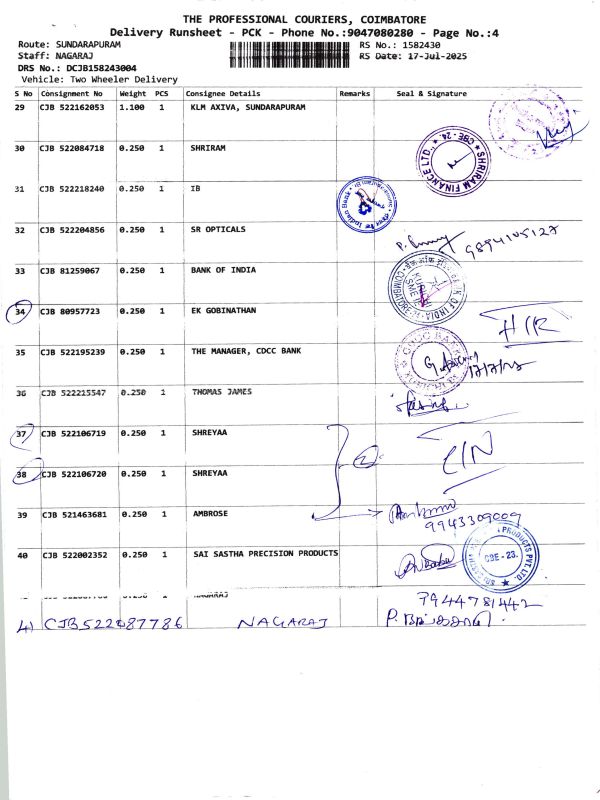 THE PROFESSIONAL COURIERS, COIMBATORE
Delivery Runsheet - PCK - Phone No.:9047080280 - Page No.:4
Route: SUNDARAPURAM RS No.: 1582430
Staff: NAGARAJ RS Date: 17-Jul-2025
DRS No.: DCJB158243004
Vehicle: Two Wheeler Delivery
S No Consignment No Weight PCS Consignee Details Remarks Seal & Signature
29 CJB 522162053 1.100 1 KLM AXIVA, SUNDARAPURAM
30 CJB 522084718 0.250 1 SHRIRAM SHRIRAM FINANCE LTD., CBE - 24
31 CJB 522218240 0.250 1 IB Indian Bank
32 CJB 522204856 0.250 1 SR OPTICALS 9894105127
33 CJB 81259067 0.250 1 BANK OF INDIA
34 CJB 80957723 0.250 1 EK GOBINATHAN
35 CJB 522195239 0.250 1 THE MANAGER, CDCC BANK 17/7/25
36 CJB 522215547 0.250 1 THOMAS JAMES
37 CJB 522106719 0.250 1 SHREYAA
38 CJB 522106720 0.250 1 SHREYAA
39 CJB 521463681 0.250 1 AMBROSE 9943309009
40 CJB 522002352 0.250 1 SAI SASTHA PRECISION PRODUCTS PRODUCTS PVT. LTD. CBE - 23.
NAGARAJ 7944781442
41 CJB522087786 NAGARAJ